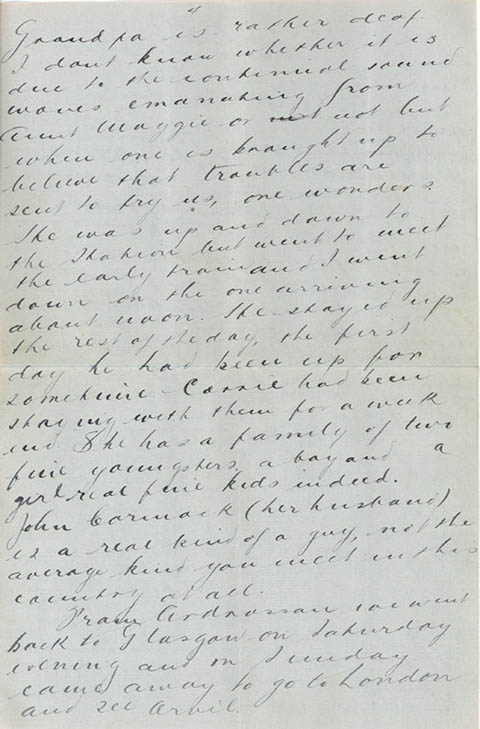 4
Grandpa is rather deaf.
I dont know whether it is
due to the continual sound
waves emanating from
Aunt Maggie or not but
when one is brought up to
believe that troubles are
sent to try us, one wonders.
She was up and down to
the station but went to meet
the early train and I went
down on the one arriving
about noon. He stayed up
the rest of the day, the first
day he had been up for
sometime. Cassie had been
staying with them for a week
end. She has a family of two
fine youngsters, a boy and a
girl real fine kids indeed.
John Cormack (her husband)
is a real kind of a guy, not the
average kind you meet in this
country at all.
From Ardrossan we went
back to Glasgow on Saturday
evening and on Sunday
came away to go to London
and see Orvil.